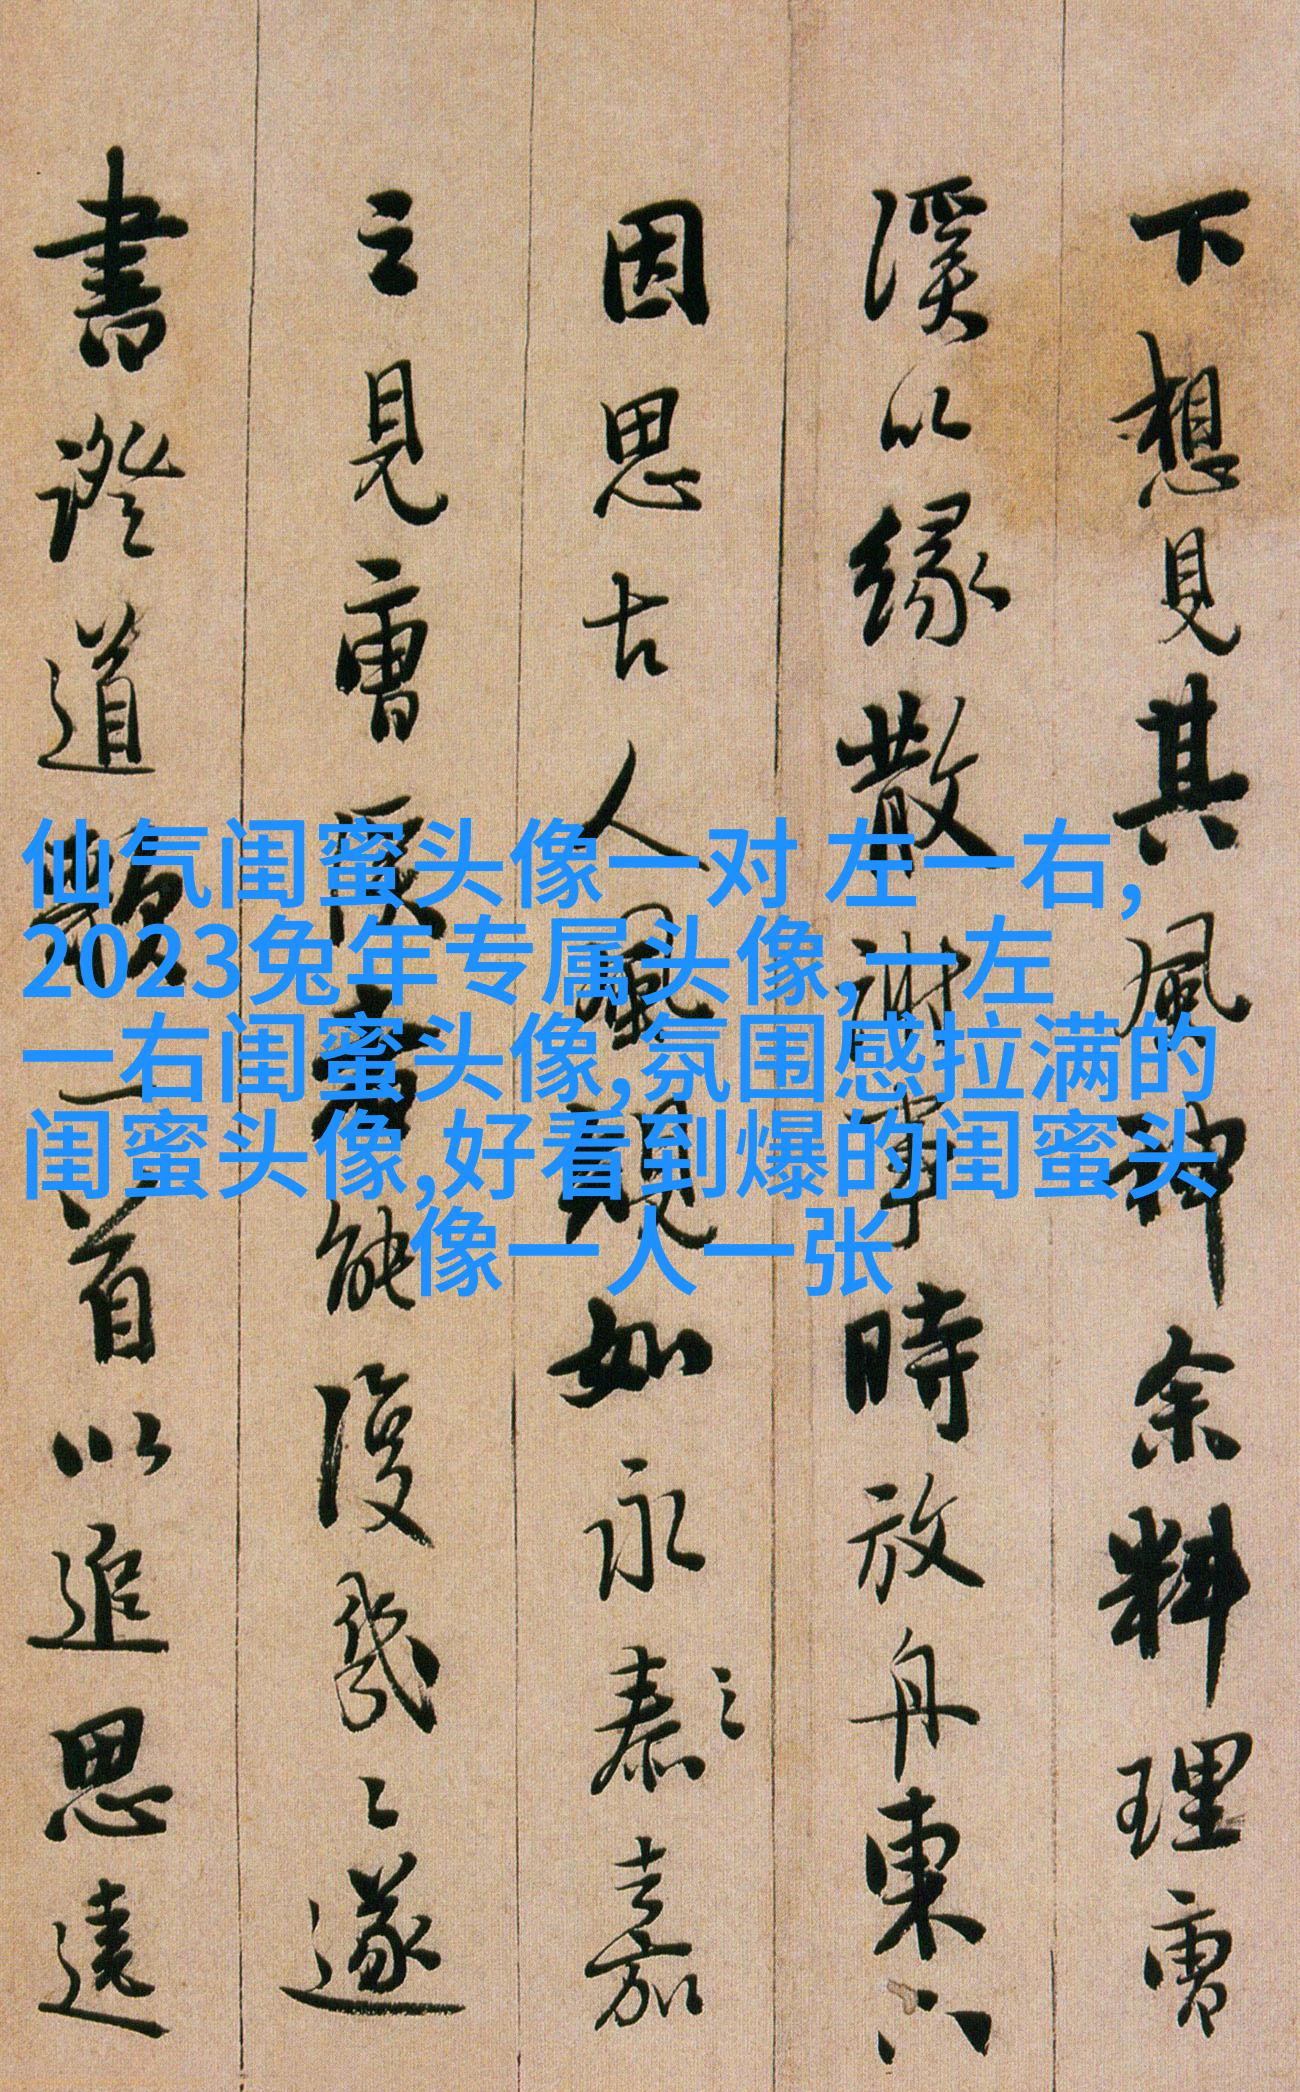 下想見其風神余料理雪
溪以緣散謝事時放舟東
因思古人風規如永泰嘉
之見雪溪者能復幾遂
書證道一首以追思遠
仙气闺蜜头像一对 左一右,
2023兔年专属头像,一左
一右闺蜜头像,氛围感拉满的
闺蜜头像,好看到爆的闺蜜头
像一人一张